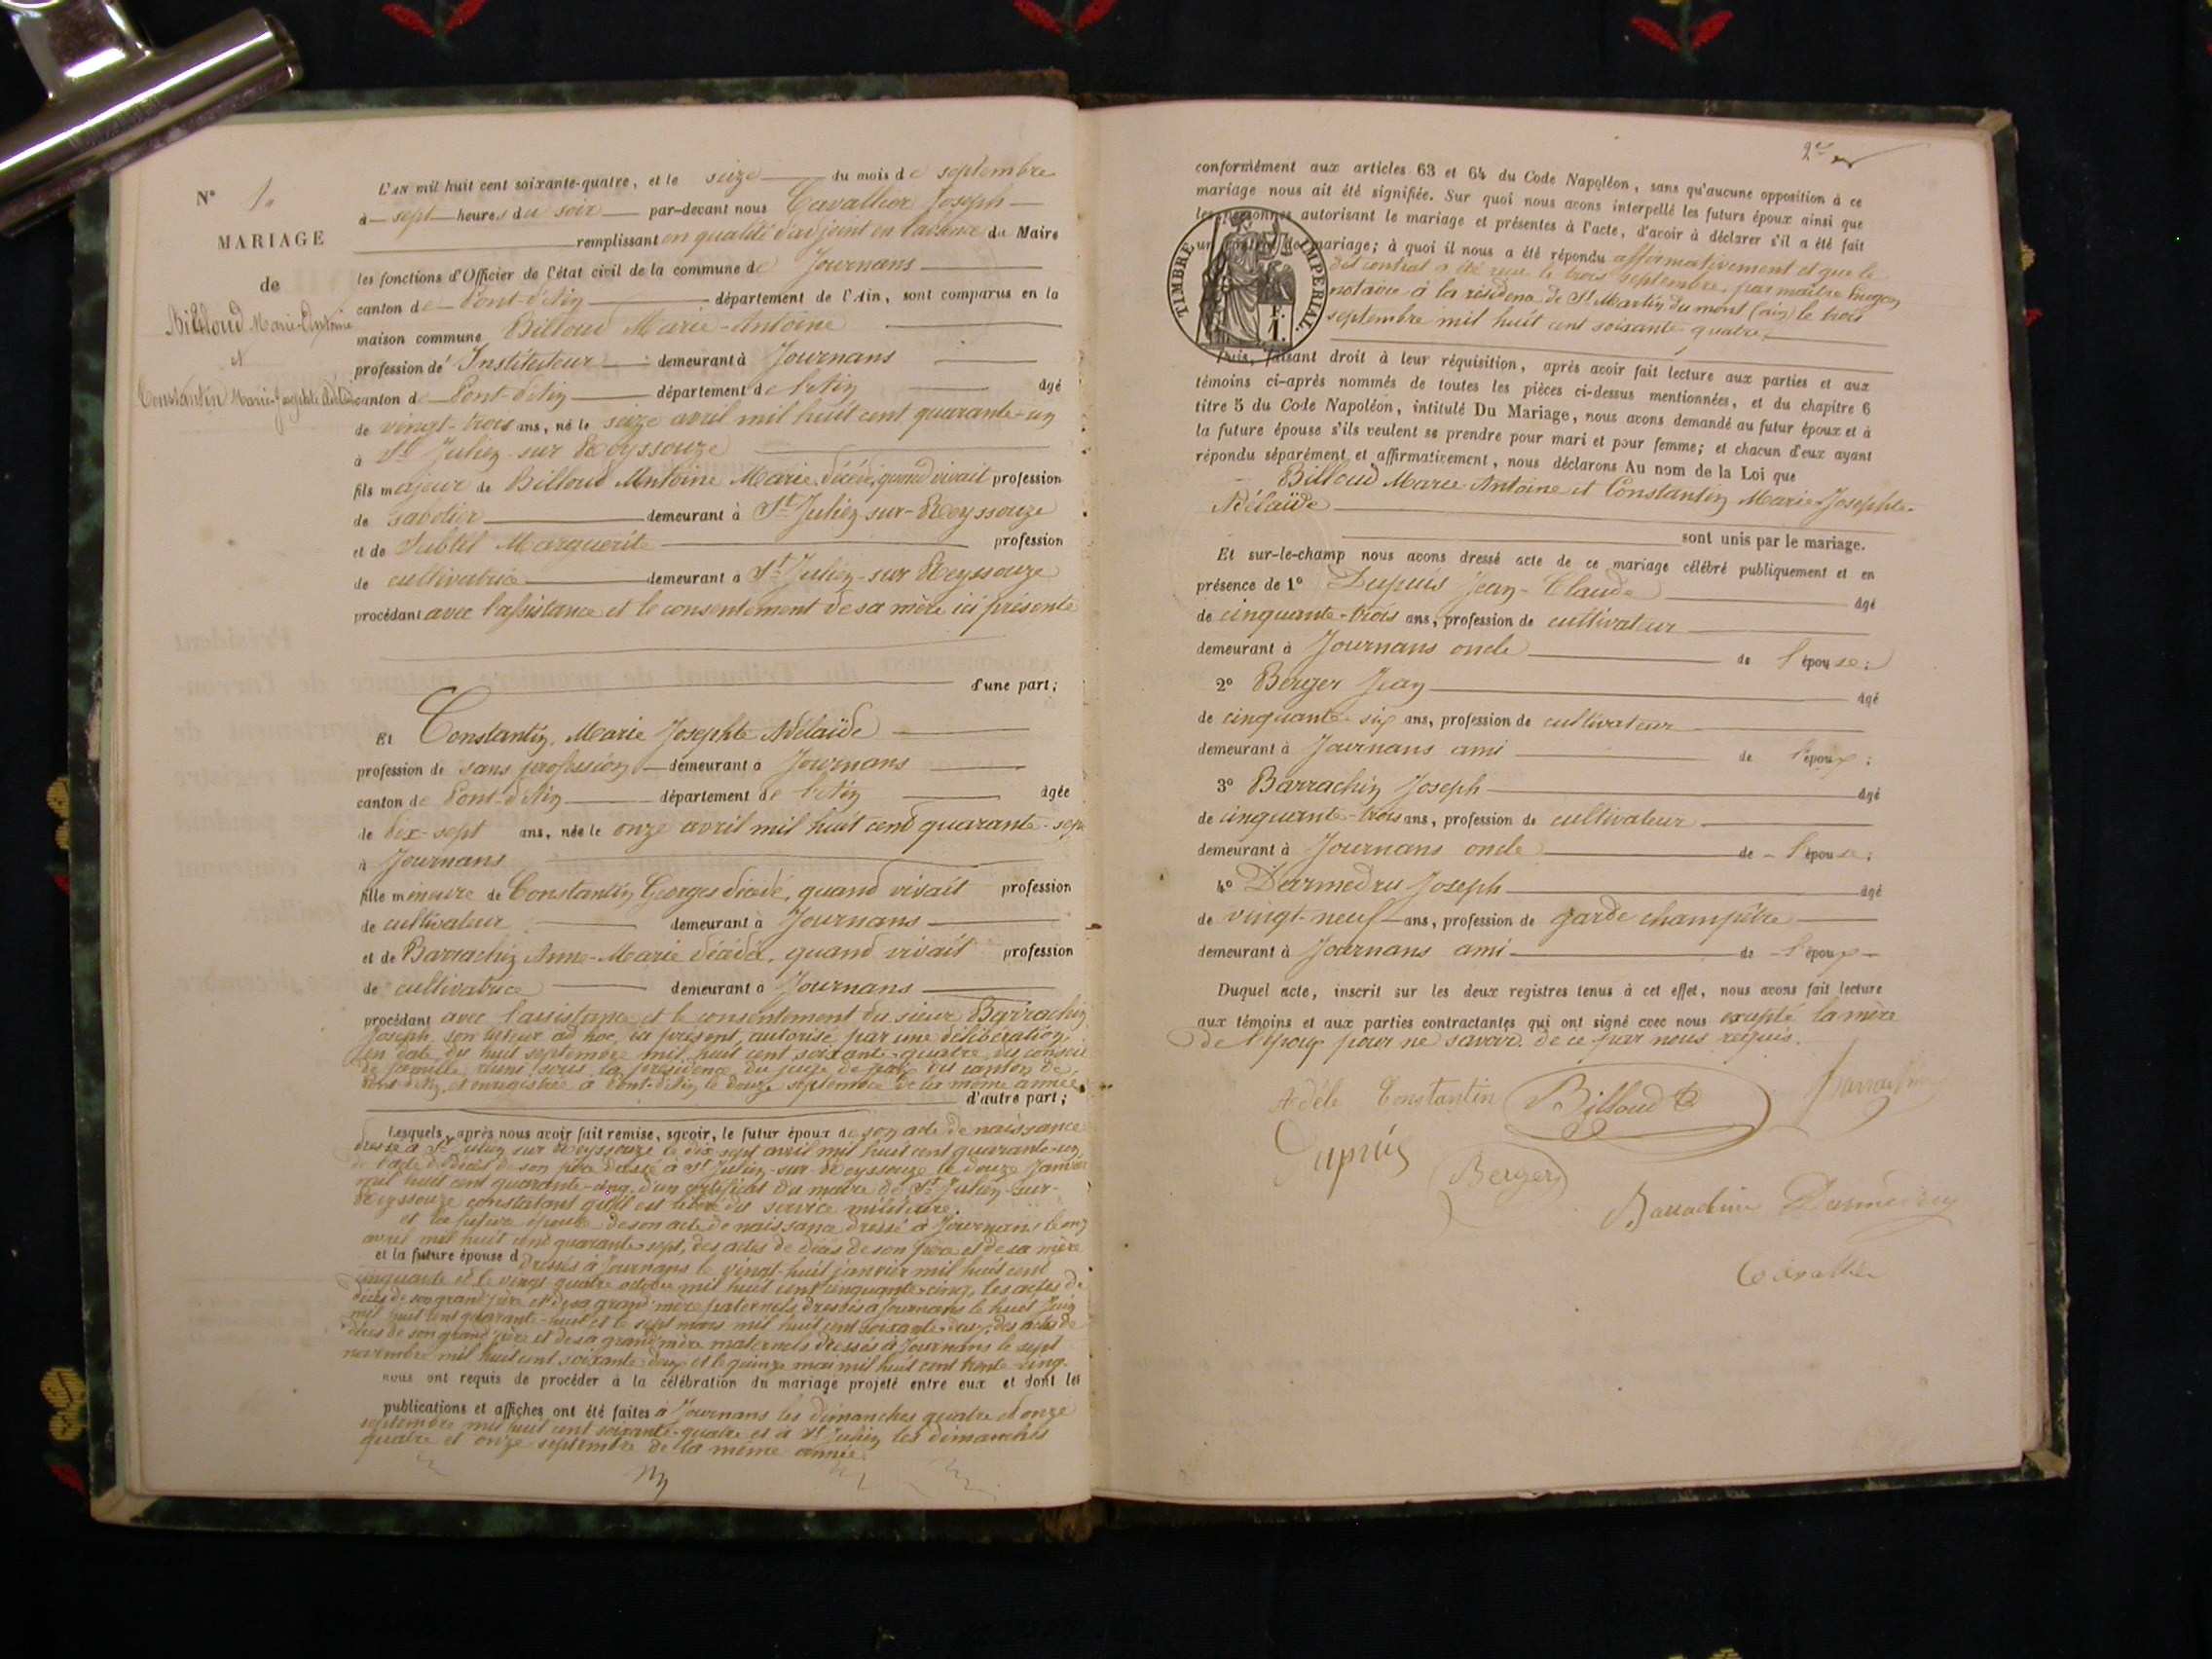 N° 1.
MARIAGE
de
Billoud Marie-Antoine
et
Constantin Marie-Josephte Adélaïde
L'AN mil huit cent soixante-quatre, et le seize du mois de septembre
à sept heures du soir par-devant nous Cavallier Joseph
remplissant en qualité d'adjoint en l'absence du Maire
les fonctions d'Officier de l'état civil de la commune de Journans
canton de Pont-d'Ain département de l'Ain, sont comparus en la
maison commune Billoud Marie-Antoine
profession d' Instituteur demeurant à Journans
canton de Pont-d'Ain département de l'Ain âgé
de vingt-trois ans, né le seize avril mil huit cent quarante-un
à St Julien-sur Reyssouze
fils majeur de Billoud Antoine Marie décédé, quand vivait profession
de sabotier demeurant à St Julien-sur-Reyssouze
et de Subtil Marguerite profession
de cultivatrice demeurant à St Julien-sur Reyssouze
procédant avec l'assistance et le consentement de sa mère ici présente
d'une part;
Et Constantin, Marie Josephte Adélaïde
profession de sans profession demeurant à Journans
canton de Pont-d'Ain département de l'Ain âgée
de dix-sept ans, née le onze avril mil huit cent quarante-sept
à Journans
fille mineure de Constantin Georges décédé, quand vivait profession
de cultivateur demeurant à Journans
et de Barrachin Anne-Marie décédée, quand vivait profession
de cultivatrice demeurant à Journans
procédant avec l'assistance et le consentement du sieur Barrachin
Joseph son tuteur ad hoc, ici présent, autorisé par une délibération
en date du huit septembre mil huit cent soixante-quatre, du conseil
de famille réuni sous la présidence du juge de paix du canton de
Pont-d'Ain, et enregistrée à Pont-d'Ain le douze septembre de la même année
d'autre part;
Lesquels, après nous avoir fait remise, savoir, le futur époux de son acte de naissance
dressé à St Julien sur Reyssouze le dix-sept avril mil huit cent quarante-un,
de l'acte de décès de son père dressé à St Julien-sur-Reyssouze le douze janvier
mil huit cent quarante-cinq, d'un certificat du maire de St Julien-sur-
Reyssouze constatant qu'il est libéré du service militaire.
et la future épouse de son acte de naissance dressé à Journans le onze
avril mil huit cent quarante-sept, des actes de décès de son père et de sa mère
et la future épouse d dressés à Journans le vingt-huit janvier mil huit cent
cinquante et le vingt quatre octobre mil huit cent cinquante-cinq, les actes de
décès de son grand'père et de sa grand'mère paternels dressés à Journans le huit juin
mil huit cent quarante-huit et le sept mars mil huit cent soixante-deux, des actes de
décès de son grand'père et de sa grand'mère maternels dressés à Journans le sept
novembre mil huit cent soixante deux et le quinze mai mil huit cent trente-cinq.
nous ont requis de procéder à la célébration du mariage projeté entre eux et dont les
publications et affiches ont été faites à Journans les dimanches quatre et onze
septembre mil huit cent soixante-quatre et à St Julien les dimanches
quatre et onze septembre de la même année.
conformément aux articles 63 et 64 du Code Napoléon, sans qu'aucune opposition à ce
mariage nous ait été signifiée. Sur quoi nous avons interpellé les futurs époux ainsi que
les personnes autorisant le mariage et présentes à l'acte, d'avoir à déclarer s'il a été fait
un contrat de mariage; à quoi il nous a été répondu affirmativement et que le
dit contrat a été reçu le trois septembre, par maître
notaire à la résidence de St Martin du mont (ain) le trois
septembre mil huit cent soixante-quatre.
TIMBRE IMPERIAL.
F. 1.
Puis, faisant droit à leur réquisition, après avoir fait lecture aux parties et aux
témoins ci-après nommés de toutes les pièces ci-dessus mentionnées, et du chapitre 6
titre 5 du Code Napoléon, intitulé Du Mariage, nous avons demandé au futur époux et à
la future épouse s'ils veulent se prendre pour mari et pour femme; et chacun d'eux ayant
répondu séparément et affirmativement, nous déclarons Au nom de la Loi que
Billoud Marie Antoine et Constantin Marie-Josephte-
Adélaïde
sont unis par le mariage.
Et sur-le-champ nous avons dressé acte de ce mariage célébré publiquement et en
présence de 1° Dupuis Jean-Claude âgé
de cinquante-trois ans, profession de cultivateur
demeurant à Journans oncle de l'épouse;
2° Berger Jean âgé
de cinquante-six ans, profession de cultivateur
demeurant à Journans ami de l'époux;
3° Barrachin Joseph âgé
de cinquante-trois ans, profession de cultivateur
demeurant à Journans oncle de l'épouse;
4° Darmedru Joseph âgé
de vingt-neuf ans, profession de garde champêtre
demeurant à Journans ami de l'époux
Duquel acte, inscrit sur les deux registres tenus à cet effet, nous avons fait lecture
aux témoins et aux parties contractantes qui ont signé avec nous excepté la mère
de l'époux pour ne savoir de ce par nous requis.
Adèle Constantin Billoud Barrachin
Dupuis Berger
Barrachin Darmedru
Cavallier